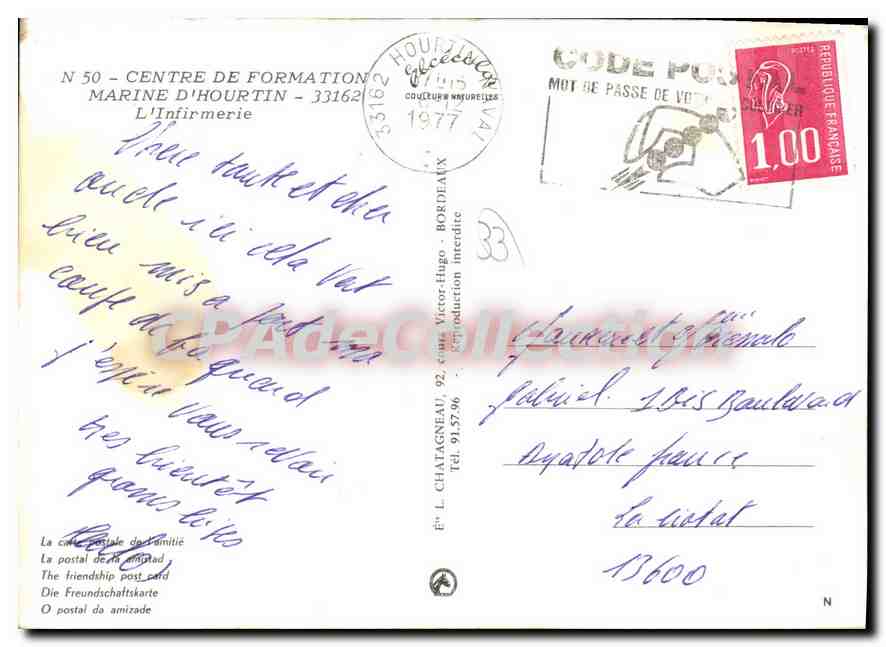 N 50 - CENTRE DE FORMATION
MARINE D'HOURTIN - 33162
L'Infirmerie
33162 HOURTIN NAVAL
1977
COULEURS NATURELLES
CODE POSTAL
MOT DE PASSE DE VOTRE COURRIER
POSTES
REPUBLIQUE FRANÇAISE
1,00
tante et cher
oncle ici cela vait
bien mis a part ma
coupe de
j'espère vous revoir
très bientôt
gross bises
La carte postale de l'amitié
La postal de la amistad
The friendship post card
Die Freundschaftskarte
O postal da amizade
Éts L. CHATAGNEAU, 92, cours Victor-Hugo - BORDEAUX
Tél. 91.57.96 - Reproduction interdite
33
Gabriel. 1 Bis Boulevard
Anatole france
La ciotat
13600
N
CPAdeCollection